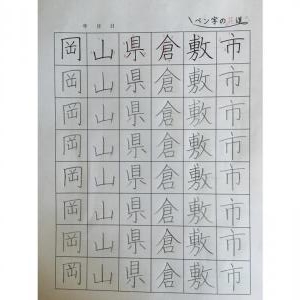 ペン字の
年 月 日
岡山県倉敷市
岡山県倉敷市
岡山県倉敷市
岡山県倉敷市
岡山県倉敷市
岡山県倉敷市
岡山県倉敷市
岡山県倉敷市